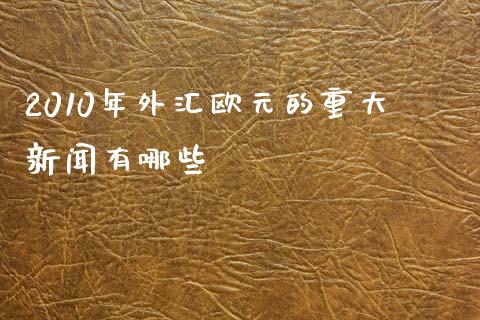 2010年外汇欧元的重大
新闻有哪些